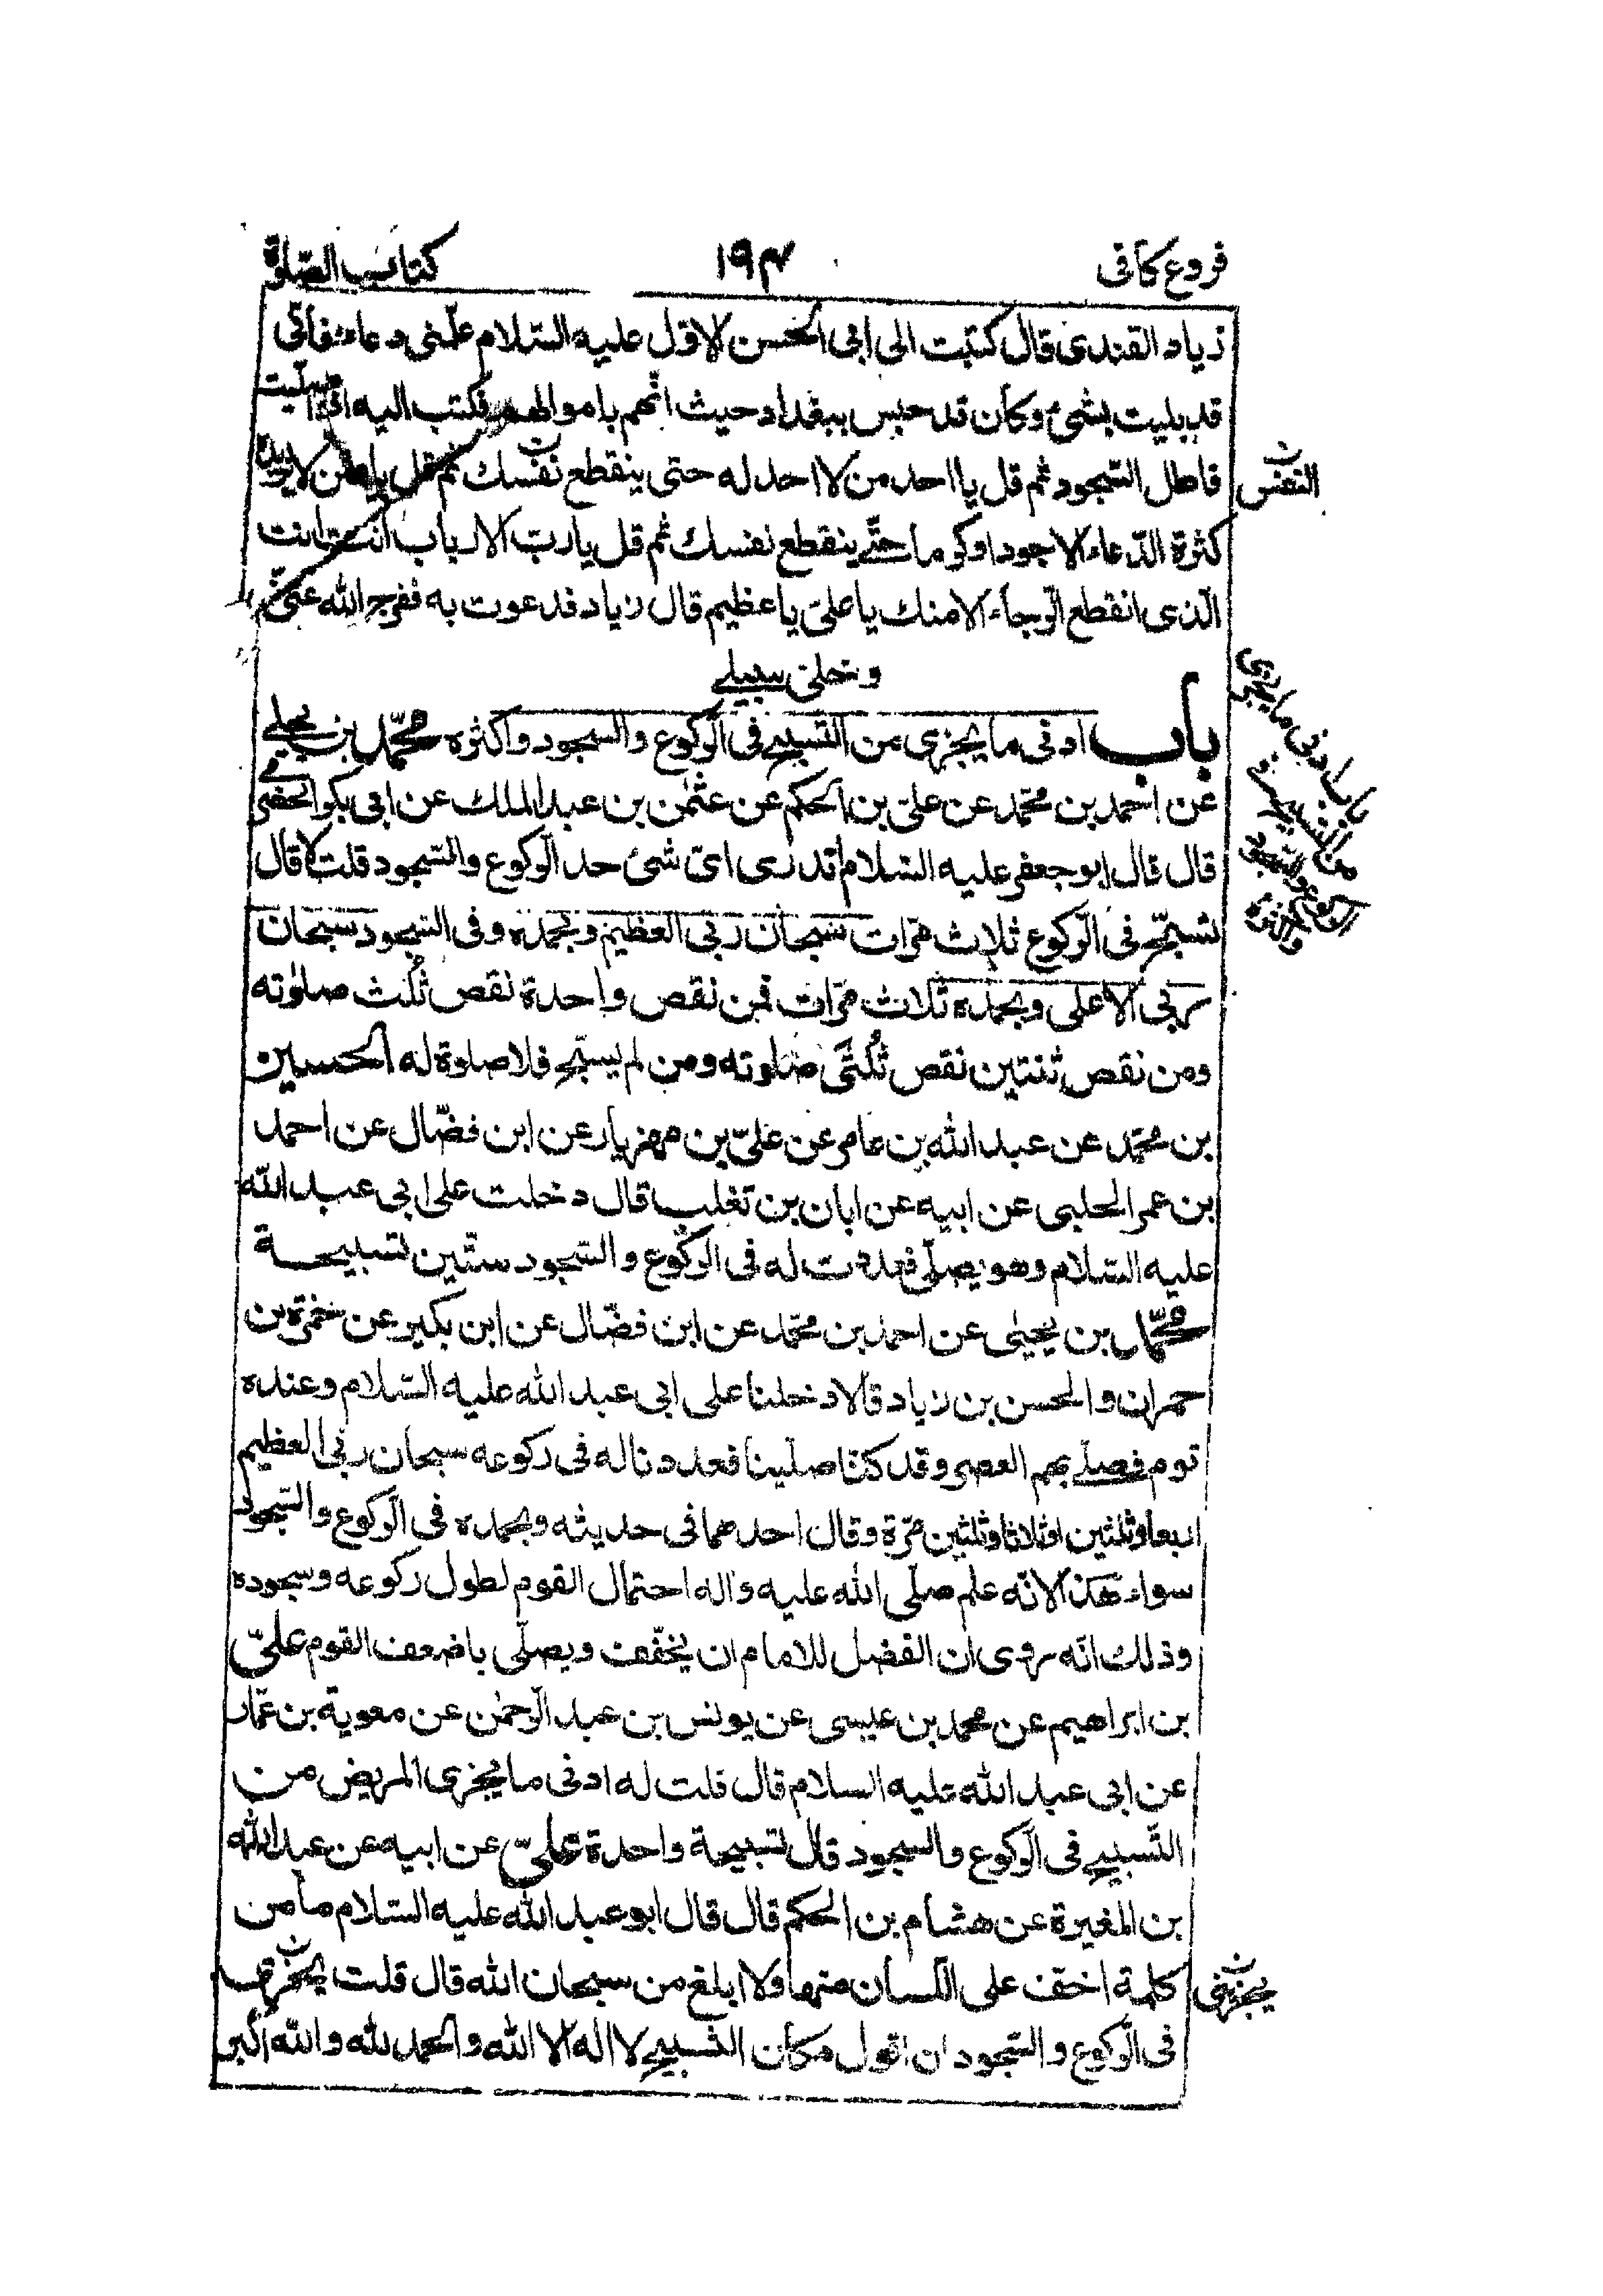 فروع كافى ١٩٤ كتاب الصّلوة
زياد القندى قال كتبت الى ابى الحسن الاوّل عليه السّلام علّمنى دعاء فانّى
قد بليت بشىء وكان قد حبس ببغداد حيث اتّهم باموالهم فكتب اليه اذا صلّيت
فاطل السّجود ثم قل يا احد من لا احد له حتى ينقطع نفسك ثم قل يا من لا يزيده
النفس
كثرة الدّعاء الا جودا وكرما حتّى ينقطع نفسك ثم قل يا ربّ الارباب انت انت انت
الّذى انقطع الرّجاء الا منك يا علىّ يا عظيم قال زياد فدعوت به ففرج الله عنّى
وخلى سبيلى
باب ادنى ما يجزى من التّسبيح فى الرّكوع والسجود واكثره محمّد بن يحيى
باب ادنى ما يجزى
من التسبيح فى
الركوع والسجود
واكثره
عن احمد بن محمّد عن علىّ بن الحكم عن عثمٰن بن عبد الملك عن ابى بكر الحضرمى
قال قال ابو جعفر عليه السّلام تدرى اىّ شىء حد الرّكوع والسّجود قلت لا قال
تسبّح فى الرّكوع ثلاث مرّات سبحان ربّى العظيم وبحمده وفى السّجود سبحان
ربّى الاعلى وبحمده ثلاث مرّات فمن نقص واحدة نقص ثُلث صلوته
ومن نقص ثنتين نقص ثُلثَى صلوته ومن لم يسبّح فلا صلوة له الحسين
بن محمّد عن عبد الله بن عامر عن علىّ بن مهزيار عن ابن فضّال عن احمد
بن عمر الحلبى عن ابيه عن ابان بن تغلب قال دخلت على ابى عبد الله
عليه السّلام وهو يصلّى فعددت له فى الركوع والسّجود ستّين تسبيحة
محمّد بن يحيىٰ عن احمد بن محمّد عن ابن فضّال عن ابن بكير عن حمزة بن
حمران والحسن بن زياد قالا دخلنا على ابى عبد الله عليه السّلام وعنده
قوم فصلّى بهم العصر وقد كنّا صلّينا فعددنا له فى ركوعه سبحان ربّى العظيم
اربعا وثلثين او ثلاثا وثلثين مرّة وقال احدهما فى حديثه وبحمده فى الرّكوع والسّجود
سواء هذا لانّه علم صلّى الله عليه واله احتمال القوم لطول ركوعه وسجوده
وذلك انّه روى ان الفضل للامام ان يخفّف ويصلّى باضعف القوم علىّ
بن ابراهيم عن محمد بن عيسى عن يونس بن عبد الرّحمٰن عن معوية بن عمّار
عن ابى عبد الله عليه السلام قال قلت له ادنى ما يجزى المريض من
التّسبيح فى الرّكوع والسجود قال تسبيحة واحدة علىّ عن ابيه عن عبد الله
بن المغيرة عن هشام بن الحكم قال قال ابو عبد الله عليه السّلام ما من
كلمة اخفّ على اللّسان منها ولا ابلغ من سبحان الله قال قلت يجزى
يجزينى
فى الرّكوع والسّجود ان اقول مكان التّسبيح لا اله الا الله والحمد لله والله اكبر